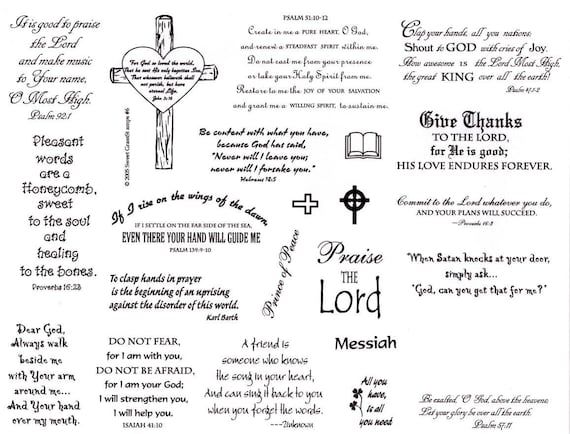 It is good to praise
the Lord
and make music
to Your name,
O Most High.
Psalm 92:1
"For God so loved the world,
that he sent His only begotten Son,
That whoever believeth shall
not perish, but have
eternal Life.
John 3:16
© 2005 Sweet Grass
amps #6
PSALM 51:10-12
Create in me a PURE HEART, O God,
and renew a STEADFAST SPIRIT within me.
Do not cast me from your presence
or take your Holy Spirit from me.
Restore to me the JOY OF YOUR SALVATION
and grant me a WILLING SPIRIT, to sustain me.
Clap your hands, all you nations;
Shout to GOD with cries of Joy.
How awesome is the Lord Most High,
the great KING over all the earth!
Psalm 47:1-2
Pleasant
words
are a
Honeycomb,
sweet
to the soul
and
healing
to the bones.
Proverbs 16:23
Be content with what you have,
because God has said,
"Never will I leave you;
never will I forsake you."
Hebrews 13:5
Give Thanks
TO THE LORD,
for He is good;
HIS LOVE ENDURES FOREVER.
If I rise on the wings of the dawn,
IF I SETTLE ON THE FAR SIDE OF THE SEA,
EVEN THERE YOUR HAND WILL GUIDE ME
PSALM 139:9-10
Prince of Peace
Commit to the Lord whatever you do,
AND YOUR PLANS WILL SUCCEED.
—Proverbs 16:3
Praise
THE
Lord
When Satan knocks at your door,
simply ask...
"God, can you get that for me?"
To clasp hands in prayer
is the beginning of an uprising
against the disorder of this world.
Karl Barth
Dear God,
Always walk
beside me
with Your arm
around me...
And Your hand
over my mouth.
DO NOT FEAR,
for I am with you,
DO NOT BE AFRAID,
for I am your God;
I will strengthen you,
I will help you.
ISAIAH 41:10
A friend is
someone who knows
the song in your heart,
And can sing it back to you
when you forget the words.
---Unknown
Messiah
All you
have,
is all
you need
Be exalted, O God, above the heavens;
Let your glory be over all the earth.
Psalm 57:11